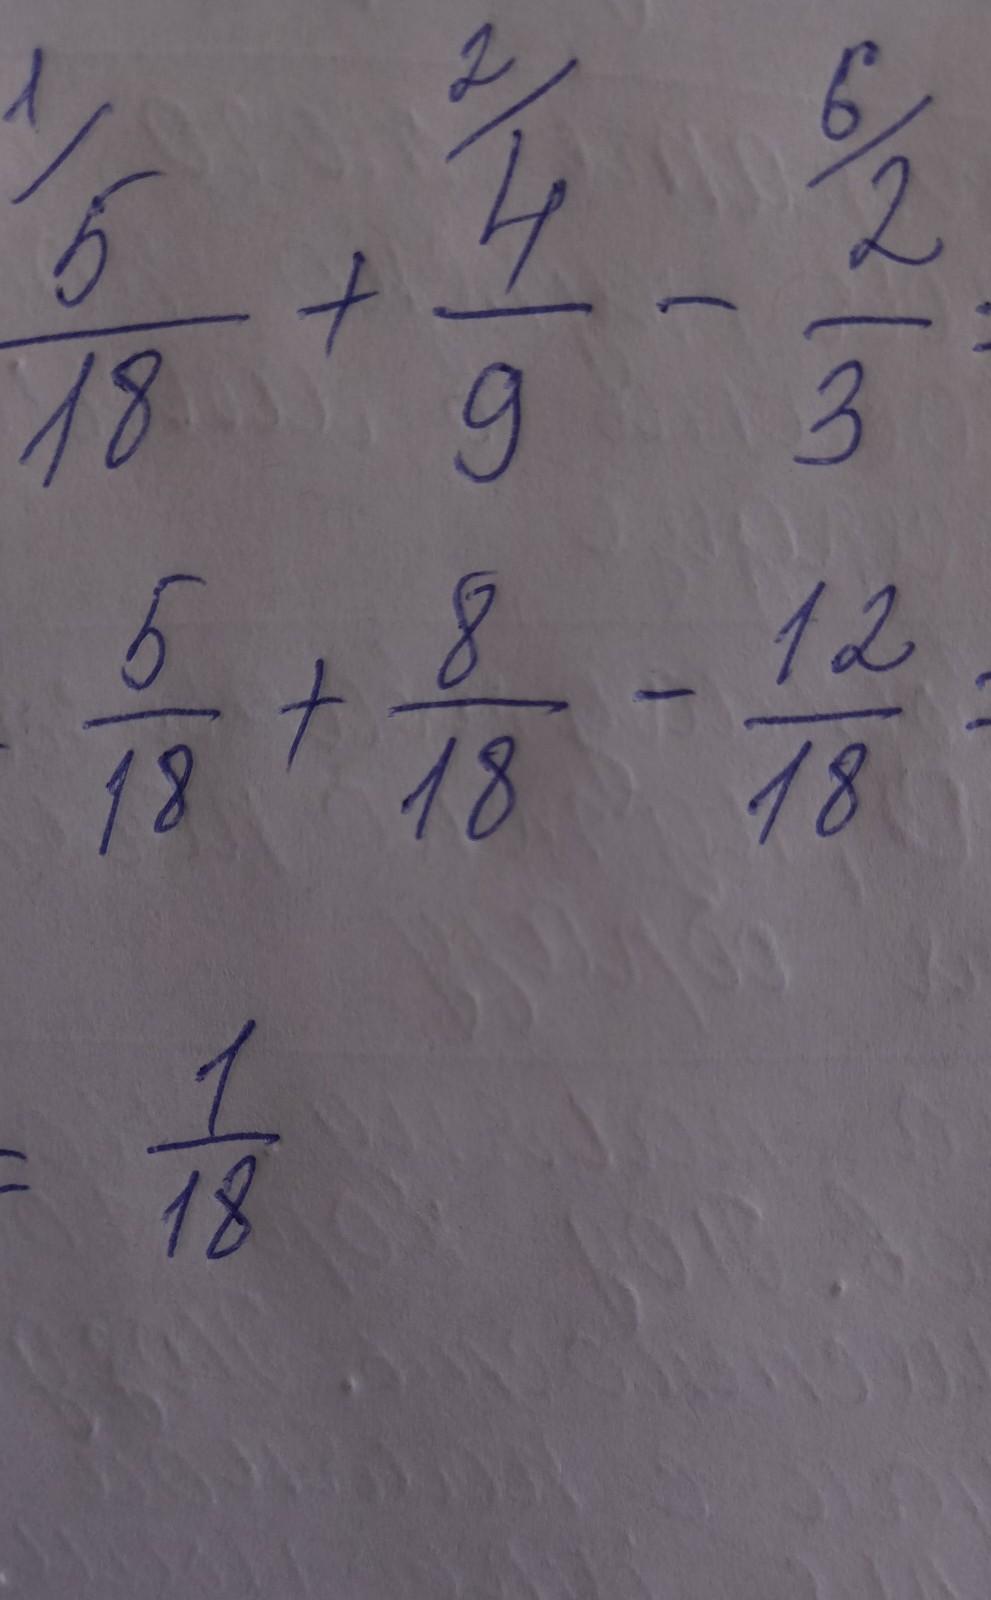 1/ 2/ 6/
5/18 + 4/9 - 2/3 =
= 5/18 + 8/18 - 12/18 =
= 1/18